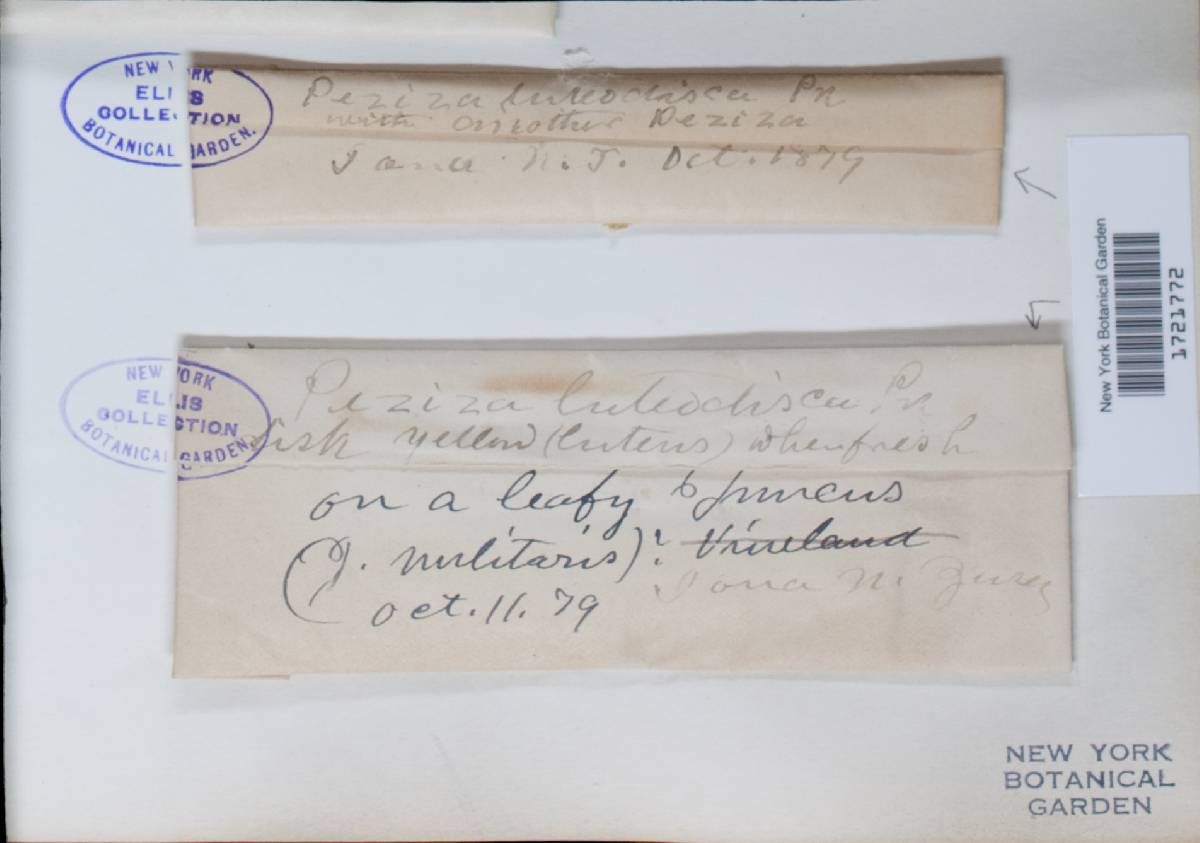 NEW YORK
ELLIS
COLLECTION
BOTANICAL GARDEN.
Peziza luteodisca Pk
with another Peziza
Iona N.J. Oct. 1879
New York Botanical Garden
1721772
NEW YORK
ELLIS
COLLECTION
BOTANICAL GARDEN.
Peziza luteodisca Pk
disk yellow (luteus) when fresh
on a leafy Juncus
(J. militaris): Vineland
Iona N. Jersey
Oct. 11. 79
NEW YORK
BOTANICAL
GARDEN